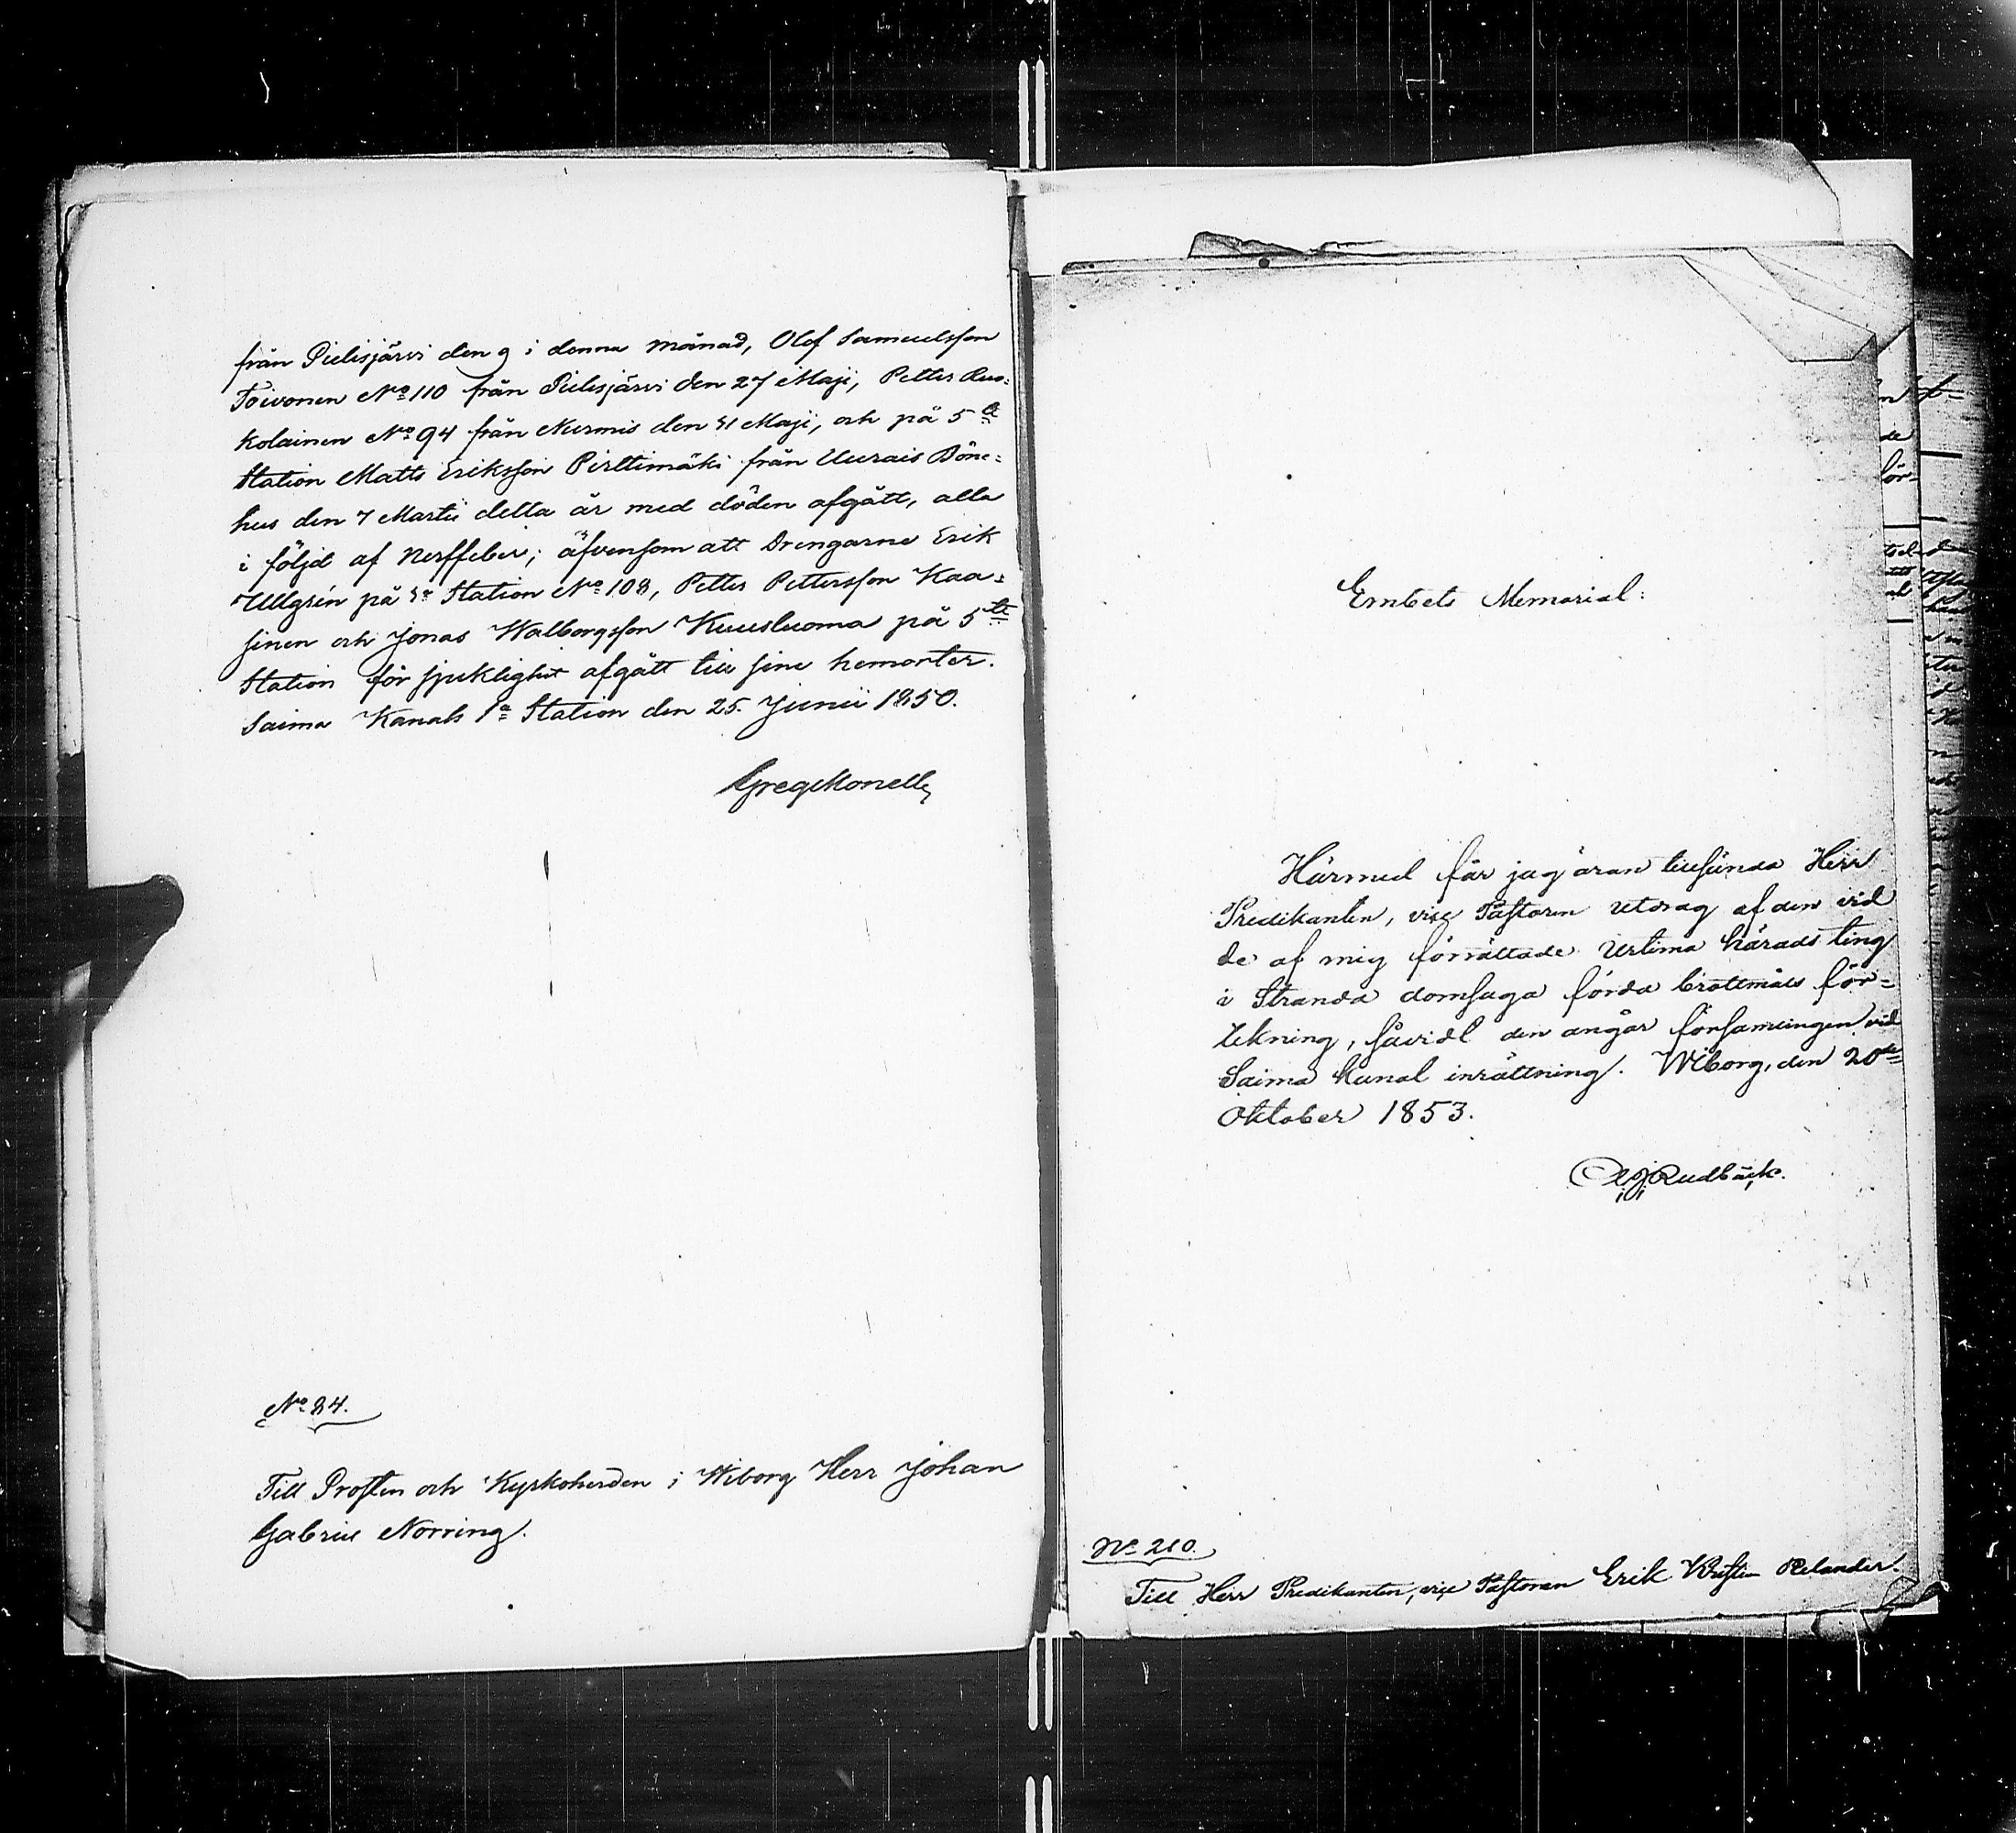 från Pielisjärvi den 9 i denna månad, Olof Samuelsson
Toivonen No 110 från Pielisjärvi den 27 Maji, Petter Ruo-
kolainen No 94 från Nurmis den 31 Maji, och på 5te
Station Matts Eriksson Pirttimäki från Uurais Böne-
hus den 7 Martii detta år med döden afgått, alla
i följd af Nerffeber; äfvensom att Drengarne Erik
Ullgrén på 3e Station No 108, Petter Pettersson Kaa-
sinen och Jonas Walborgsson Kuusluoma på 5te
Station för sjuklighet afgått till sine hemorter.
Saima Kanals 1a Station den 25. Junii 1850.
No 84.
Till Prosten och Kyrkoherden i Wiborg Herr Johan
Gabriel Norring.
Embets Memorial:
Härmed får jag äran tillsända Herr
Predikanten, vice Pastoren utdrag af den vid
de af mig förrättade Urtima härads ting
i Stranda domsaga förda brottmåls för-
tekning, såvidt den angår församlingen vid
Saima kanal inrättning. Wiborg, den 20de
Oktober 1853.
Rudbäck.
No 210.
Till Herr Predikanten, vice Pastoren Erik Kristian Relander.